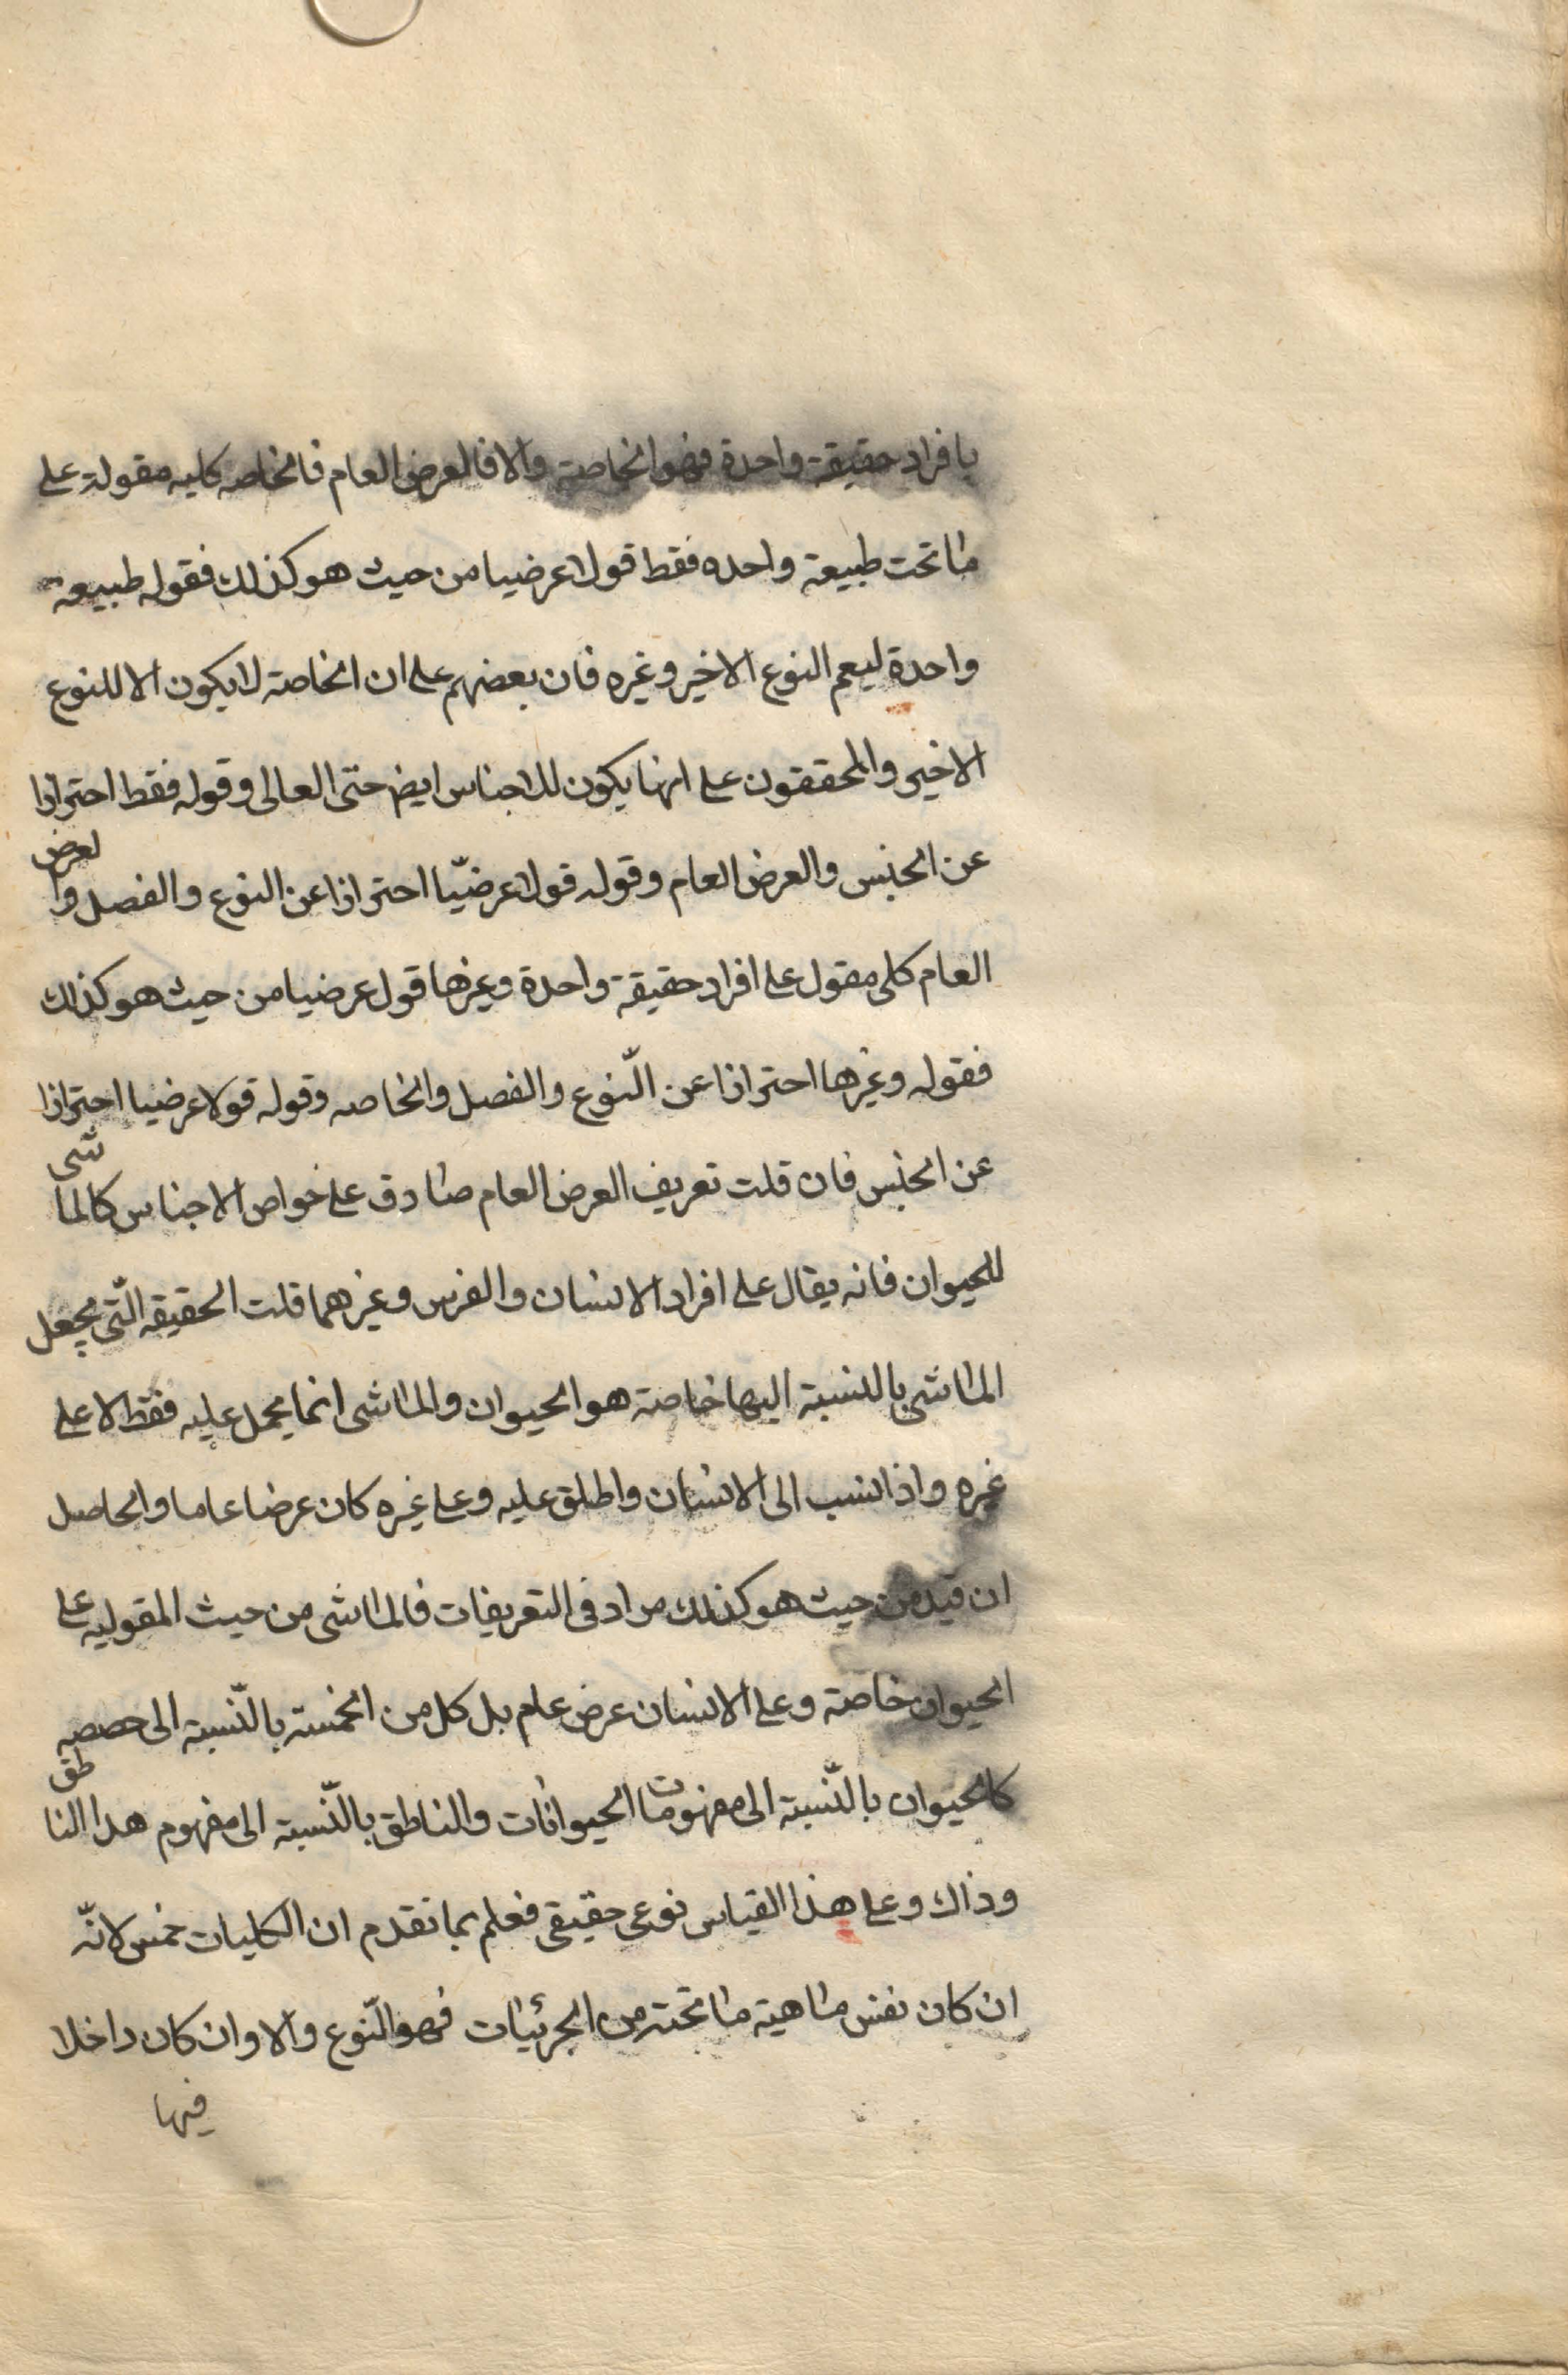 بافراد حقيقة واحدة فهو الخاصة والا فالعرض العام فالخاصه كليه مقولة على
ما تحت طبيعة واحده فقط قولا عرضيا من حيث هو كذلك فقوله طبيعة
واحدة ليعم النوع الاخير وغيره فان بعضهم على ان الخاصة لا يكون الا للنوع
الاخير والمحققون على انها يكون للاجناس ايض حتى العالى وقوله فقط احترازا
عن الجنس والعرض العام وقوله قولا عرضيّا احترازا عن النوع والفصل والعرض
العام كلى مقول على افراد حقيقة واحدة وغيرها قول عرضيا من حيث هو كذلك
فقوله وغيرها احترازا عن النّوع والفصل والخاصه وقوله قولا عرضيا احترازا
عن الجنس فان قلت تعريف العرض العام صادق على خواص الاجناس كالماشى
للحيوان فانه يقال على افراد الانسان والفرس وغيرهما قلت الحقيقه الّتى يجعل
الماشى بالنسبة اليها خاصة هو الحيوان والماشى انما يحمل عليه فقط لا على
غيره واذا نسب الى الانسان واطلق عليه وعلى غيره كان عرضا عاما والحاصل
ان قيد من حيث هو كذلك مراد فى التعريفات فالماشى من حيث المقوليه على
الحيوان خاصة وعلى الانسان عرض عام بل كل من الخمسة بالنّسبة الى حصصه
كالحيوان بالنّسبة الى مفهومات الحيوانات والناطق بالنّسبة الى مفهوم هذا الناطق
وذاك وعلى هذا القياس نوعى حقيقى فعلم بما تقدم ان الكليات خمس لانّه
ان كان نفس ماهية ما تحته من الجزئيات فهو النّوع والا وان كان داخلا
فيها